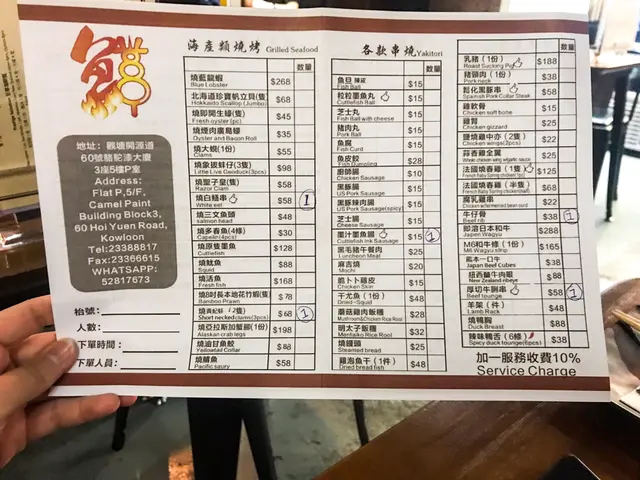 地址: 觀塘開源道
60號駱駝漆大廈
3座5樓P室
Address:
Flat P,5/F,
Camel Paint
Building Block3,
60 Hoi Yuen Road,
Kowloon
Tel:23388817
Fax:23366615
WHATSAPP:
52817673
枱號:
人數:
下單時間:
下單人員:
海產類燒烤 Grilled Seafood
數量
燒藍龍蝦 $268
Blue Lobster
北海道珍寶帆立貝(隻) $68
Hokkaido Scallop (Jumbo)
燒即開生蠔(隻) $45
Fresh oyster (pc)
燒煙肉廣島蠔 $35
Oyster and Bacon Roll
燒大蜆(1份) $55
Clams
燒象拔蚌仔(3隻) $98
Little Live Geoduck(3pcs)
燒聖子皇(隻) $58
Razor Clam
燒白鱔串 $58 1
White eel
燒三文魚頭 $48
salmon head
燒多春魚(4條) $30
Capelin(4pcs)
燒原隻墨魚 $128
Cuttlefish
燒魷魚 $88
Squid
燒活魚 $168
Fresh fish
燒8吋長本地花竹蝦(隻) $78
Bamboo Prawn
燒貴妃蚌(2隻) $68 1
Short necked clams(3pcs)
燒亞拉斯加蟹腳(1份) $198
Alaskan crab legs
燒油甘魚鮫 $88
Yellowtail Collar
燒鯖魚 $58
Pacific saury
各款串燒 Yakitori
數量
魚旦 辣/泡 $15
Fish Ball
粒粒墨魚丸 $15
Cuttlefish Ball
芝士丸 $15
Fish Ball with cheese
豬肉丸 $15
Pork Ball
魚腐 $15
Fish Curd
魚皮餃 $28
Fish Dumpling
廚師腸 $10
Chicken Sausage
黑豚腸 $15
Pork Sausage
黑豚辣肉腸 $15
US Pork Sausage(spicy)
芝士腸 $15
Cheese Sausage
墨汁墨魚腸 $15 1
Cuttlefish Ink Sausage
黑毛豬午餐肉 $25
Luncheon Meat
麻吉燒 $20
Mochi
脆卜卜雞皮 $15
Chicken Skin
干尤魚(1份) $48
Dried Squid
蘑菇雞肉飯糰 $28
Mushroom&Chicken Rice Rool
明太子飯糰 $32
Mentaiko Rice Rool
燒饅頭 $25
Steamed bread
雞泡魚干(1件) $48
Dried bread fish
數量
乳豬(1份) $188
Roast Sucking Pig
豬頸肉(1份) $38
Pork neck
粒化黑豚串 $58
Spanish Pork Collar Steak
雞軟骨 $15
Chicken soft bone
雞腎 $25
Chicken gizzard
鹽燒雞中亦(2隻) $22
Chicken wings(2pcs)
蒜香雞全翼 $25
Whole chicken wing w/garlic sauce
法國燒春雞(1隻) $125
French Baby Spring chicken(1pc)
法國燒春雞(半隻) $68
French Baby Spring chicken
腐乳雞串 $22
Chicken w/fermented bean curd
牛仔骨 $38 1
Beef rib
即溶日本和牛 $288
Japan Wagyu
M6和牛條(1份) $165
M6 Wagyu strip
熊本一口牛 $38
Japan Beef Cubes
紐西蘭牛肉眼 $88
New Zealand ribeye
厚切牛脷串 $58 1
Beef tounge
羊架(件) $48
Lamb Rack
燒鴨胸 $88
Duck Breast
辣味鴨舌(6條) $38
Spicy duck tounge(6pcs)
加一服務收費10%
Service Charge